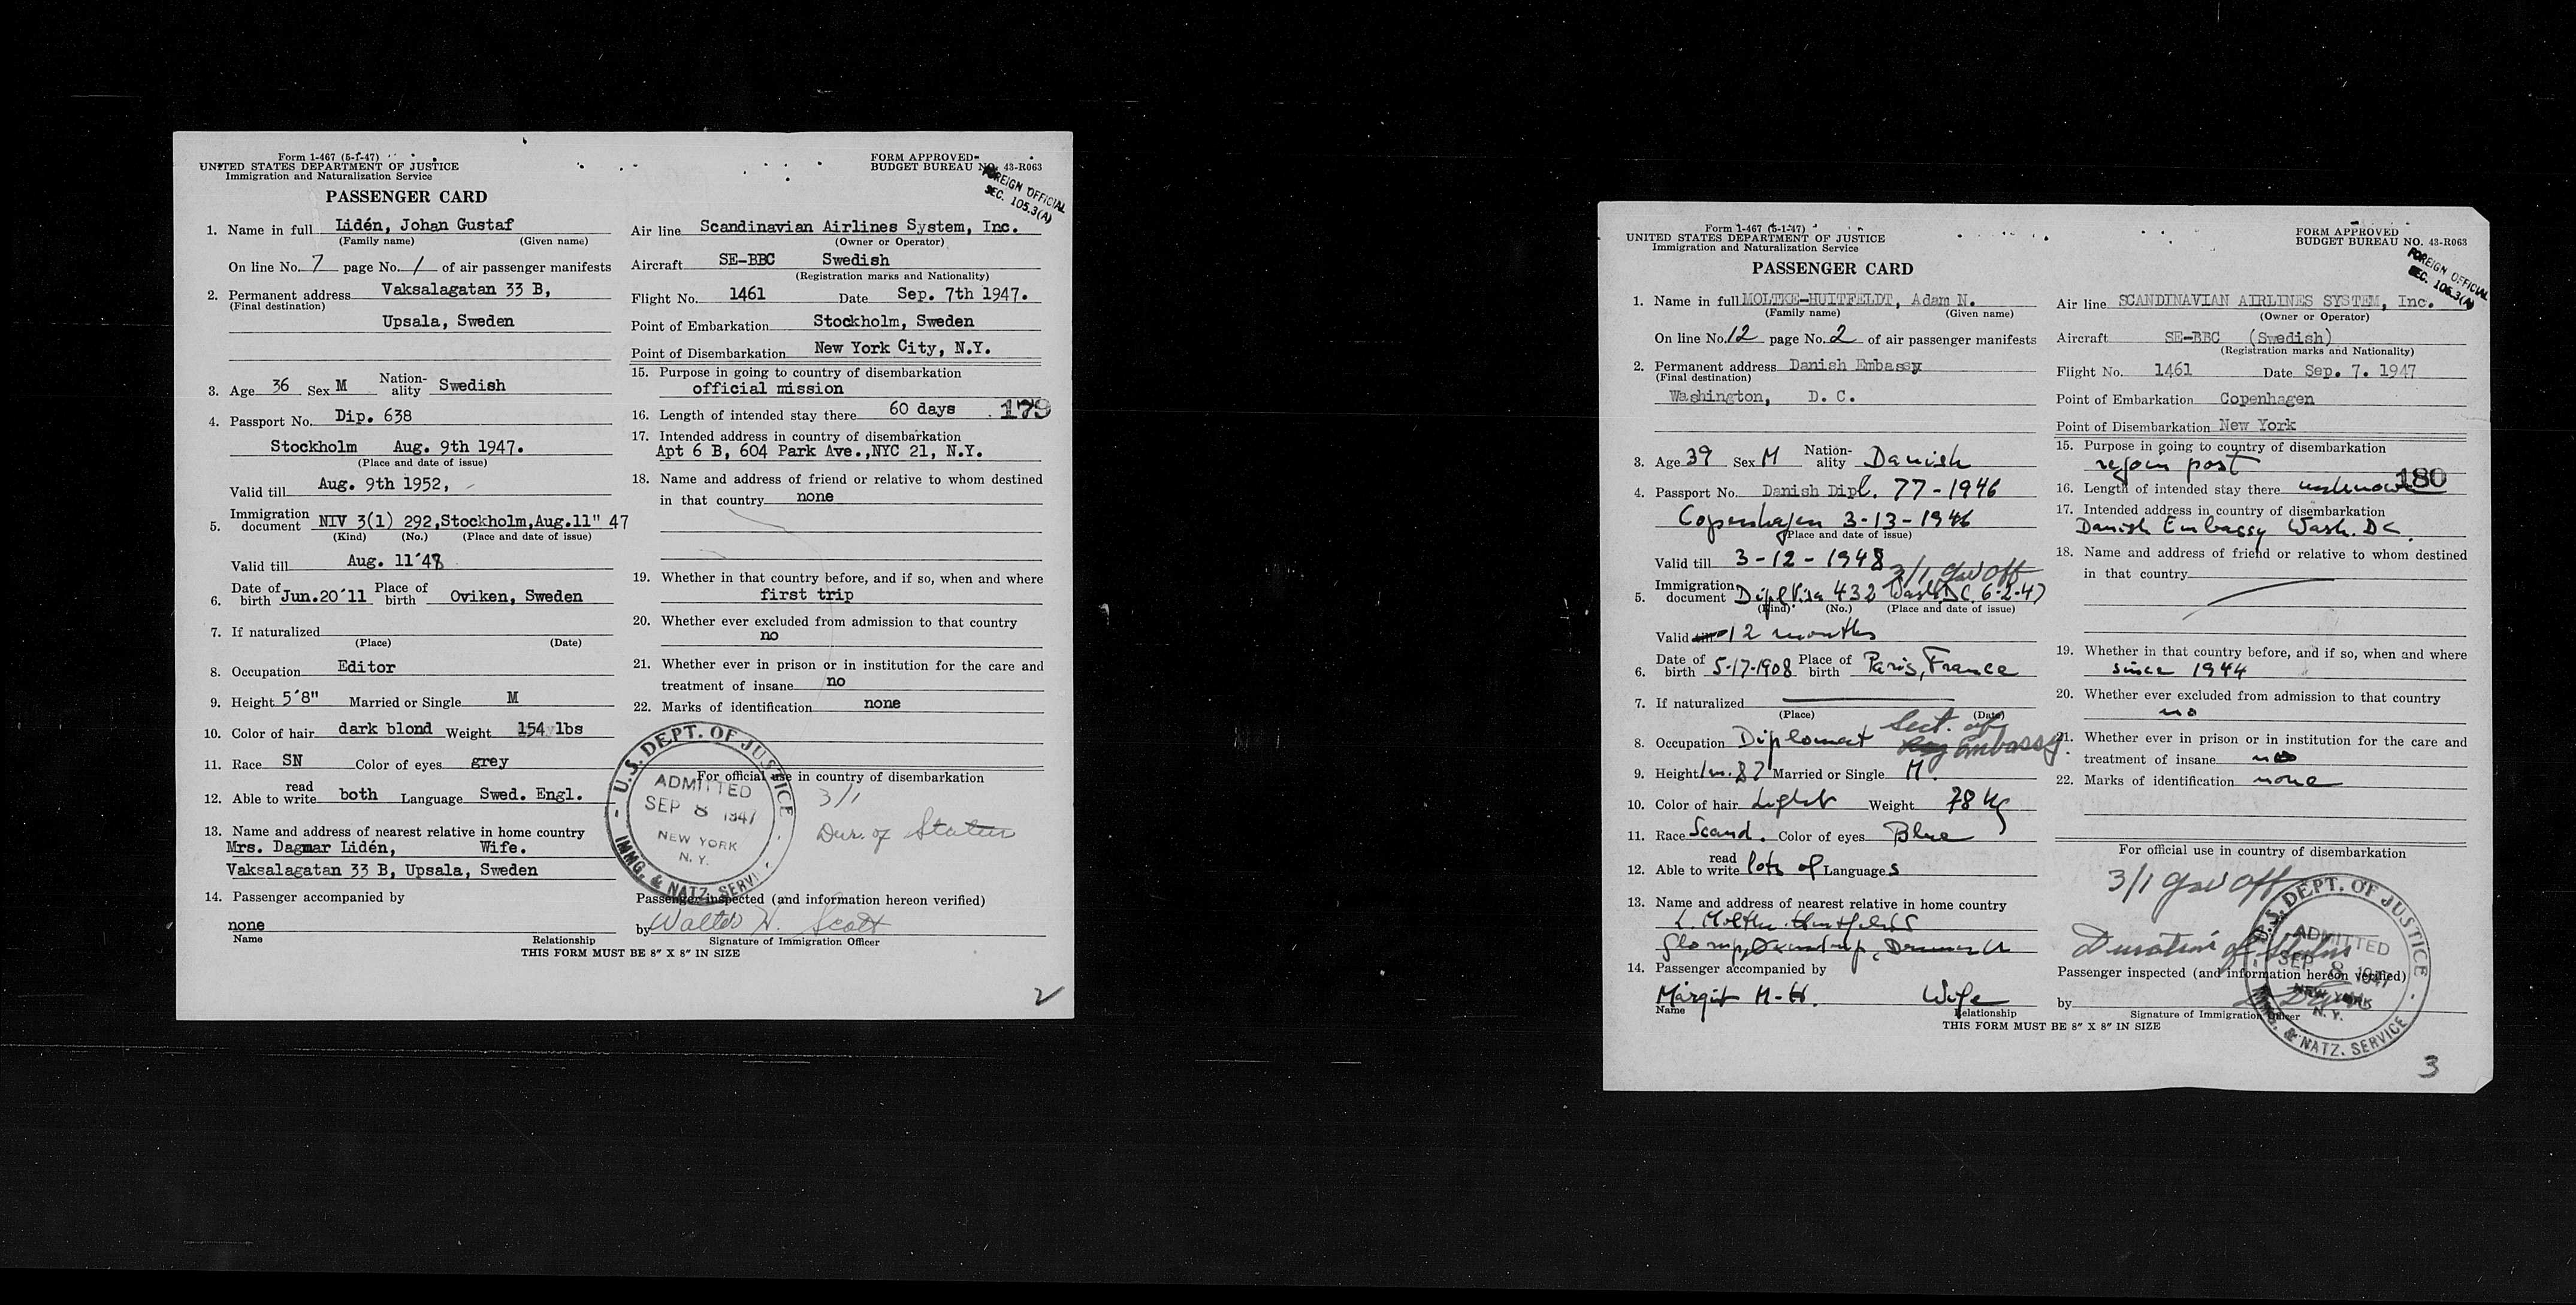 Form 1-467 (5-1-47)
UNITED STATES DEPARTMENT OF JUSTICE
Immigration and Naturalization Service
PASSENGER CARD
FORM APPROVED
BUDGET BUREAU NO. 43-R063
FOREIGN OFFICIAL
SEC. 105.3(A)
1. Name in full Lidén, Johan Gustaf
(Family name) (Given name)
On line No. 7 page No. 1 of air passenger manifests
2. Permanent address Vaksalagatan 33 B,
(Final destination)
Upsala, Sweden
3. Age 36 Sex M Nation-ality Swedish
4. Passport No. Dip. 638
Stockholm Aug. 9th 1947.
(Place and date of issue)
Valid till Aug. 9th 1952,
5. Immigration document NIV 3(1) 292, Stockholm, Aug. 11" 47
(Kind) (No.) (Place and date of issue)
Valid till Aug. 11'48
6. Date of birth Jun. 20'11 Place of birth Oviken, Sweden
7. If naturalized
(Place) (Date)
8. Occupation Editor
9. Height 5'8" Married or Single M
10. Color of hair dark blond Weight 154 lbs
11. Race SN Color of eyes grey
12. Able to read write both Language Swed. Engl.
13. Name and address of nearest relative in home country
Mrs. Dagmar Lidén, Wife.
Vaksalagatan 33 B, Upsala, Sweden
14. Passenger accompanied by
none
Name Relationship
Air line Scandinavian Airlines System, Inc.
(Owner or Operator)
Aircraft SE-BBC Swedish
(Registration marks and Nationality)
Flight No. 1461 Date Sep. 7th 1947.
Point of Embarkation Stockholm, Sweden
Point of Disembarkation New York City, N.Y.
15. Purpose in going to country of disembarkation
official mission
16. Length of intended stay there 60 days 179
17. Intended address in country of disembarkation
Apt 6 B, 604 Park Ave., NYC 21, N.Y.
18. Name and address of friend or relative to whom destined
in that country none
19. Whether in that country before, and if so, when and where
first trip
20. Whether ever excluded from admission to that country
no
21. Whether ever in prison or in institution for the care and
treatment of insane no
22. Marks of identification none
For official use in country of disembarkation
3/1
Dur. of Status
U.S. DEPT. OF JUSTICE
ADMITTED
SEP 8 1947
NEW YORK
N. Y.
IMMG. & NATZ. SERVICE
Passenger inspected (and information hereon verified)
by Walter W. Scott
Signature of Immigration Officer
THIS FORM MUST BE 8" X 8" IN SIZE
2
Form 1-467 (5-1-47)
UNITED STATES DEPARTMENT OF JUSTICE
Immigration and Naturalization Service
PASSENGER CARD
FORM APPROVED
BUDGET BUREAU NO. 43-R063
FOREIGN OFFICIAL
SEC. 105.3(A)
1. Name in full MOLTKE-HUITFELDT, Adam N.
(Family name) (Given name)
On line No. 12 page No. 2 of air passenger manifests
2. Permanent address Danish Embassy
(Final destination)
Washington, D. C.
3. Age 39 Sex M Nation-ality Danish
4. Passport No. Danish Dipl. 77-1946
Copenhagen 3-13-1946
(Place and date of issue)
Valid till 3-12-1948
3/1 Gov Off
5. Immigration document Dipl Visa 432 Wash DC 6-2-47
(Kind) (No.) (Place and date of issue)
Valid till 12 months
6. Date of birth 5-17-1908 Place of birth Paris, France
7. If naturalized
(Place) (Date)
8. Occupation Diplomat Sect. of Embassy.
9. Height 1m. 87 Married or Single M.
10. Color of hair Light Weight 78 kg
11. Race Scand. Color of eyes Blue
12. Able to read write lots of Languages
13. Name and address of nearest relative in home country
L. Moltke-Huitfeldt
Glorup, Denmark
14. Passenger accompanied by
Margit M-H. Wife
Name Relationship
Air line SCANDINAVIAN AIRLINES SYSTEM, Inc.
(Owner or Operator)
Aircraft SE-BBC (Swedish)
(Registration marks and Nationality)
Flight No. 1461 Date Sep. 7. 1947
Point of Embarkation Copenhagen
Point of Disembarkation New York
15. Purpose in going to country of disembarkation
rejoin post
16. Length of intended stay there unknown 180
17. Intended address in country of disembarkation
Danish Embassy Wash. DC.
18. Name and address of friend or relative to whom destined
in that country
19. Whether in that country before, and if so, when and where
since 1944
20. Whether ever excluded from admission to that country
no
21. Whether ever in prison or in institution for the care and
treatment of insane no
22. Marks of identification none
For official use in country of disembarkation
3/1 Gov Off
Duration of Status
U.S. DEPT. OF JUSTICE
ADMITTED
SEP 8 1947
NEW YORK
N. Y.
IMMG. & NATZ. SERVICE
Passenger inspected (and information hereon verified)
by
Signature of Immigration Officer
THIS FORM MUST BE 8" X 8" IN SIZE
3